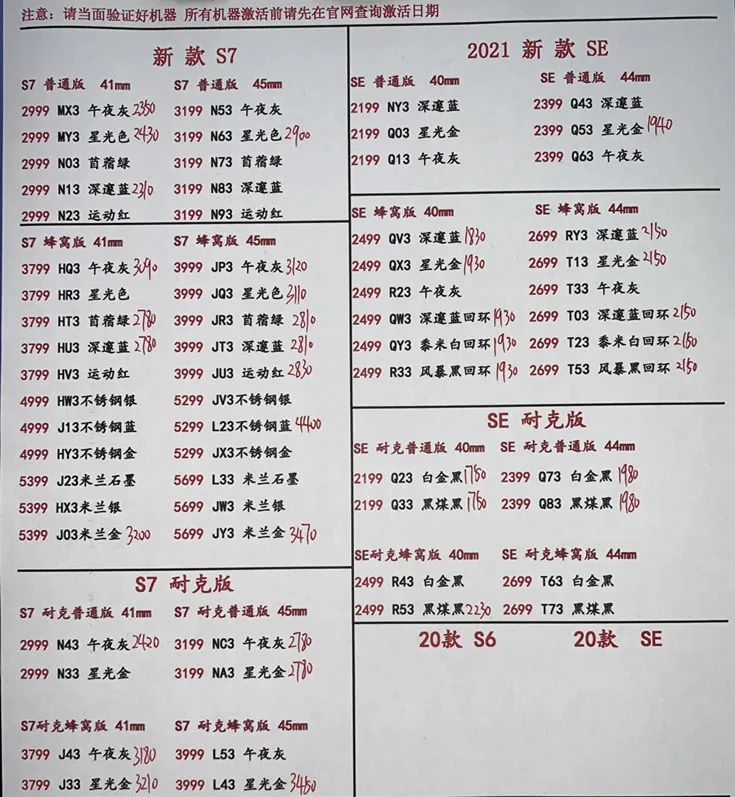 注意: 请当面验证好机器 所有机器激活前请先在官网查询激活日期
新 款 S7
S7 普通版 41mm
2999 MX3 午夜灰 2350
2999 MY3 星光色 2430
2999 N03 首蓿绿
2999 N13 深邃蓝 2310
2999 N23 运动红
S7 普通版 45mm
3199 N53 午夜灰
3199 N63 星光色 2900
3199 N73 首蓿绿
3199 N83 深邃蓝
3199 N93 运动红
S7 蜂窝版 41mm
3799 HQ3 午夜灰 3090
3799 HR3 星光色
3799 HT3 首蓿绿 2780
3799 HU3 深邃蓝 2780
3799 HV3 运动红
4999 HW3不锈钢银
4999 J13不锈钢蓝
4999 HY3不锈钢金
5399 J23米兰石墨
5399 HX3米兰银
5399 J03米兰金 3200
S7 蜂窝版 45mm
3999 JP3 午夜灰 3120
3999 JQ3 星光色 3110
3999 JR3 首蓿绿 2810
3999 JT3 深邃蓝 2810
3999 JU3 运动红 2830
5299 JV3不锈钢银
5299 L23不锈钢蓝 4400
5299 JX3不锈钢金
5699 L33 米兰石墨
5699 JW3 米兰银
5699 JY3 米兰金 3470
S7 耐克版
S7 耐克普通版 41mm
2999 N43 午夜灰 2420
2999 N33 星光金
S7 耐克普通版 45mm
3199 NC3 午夜灰 2780
3199 NA3 星光金 2780
S7耐克蜂窝版 41mm
3799 J43 午夜灰 3180
3799 J33 星光金 3210
S7 耐克蜂窝版 45mm
3999 L53 午夜灰
3999 L43 星光金 3450
2021 新 款 SE
SE 普通版 40mm
2199 NY3 深邃蓝
2199 Q03 星光金
2199 Q13 午夜灰
SE 普通版 44mm
2399 Q43 深邃蓝
2399 Q53 星光金 1940
2399 Q63 午夜灰
SE 蜂窝版 40mm
2499 QV3 深邃蓝 1830
2499 QX3 星光金 1930
2499 R23 午夜灰
2499 QW3 深邃蓝回环 1930
2499 QY3 黍米白回环 1930
2499 R33 风暴黑回环 1930
SE 蜂窝版 44mm
2699 RY3 深邃蓝 2150
2699 T13 星光金 2150
2699 T33 午夜灰
2699 T03 深邃蓝回环 2150
2699 T23 黍米白回环 2150
2699 T53 风暴黑回环 2150
SE 耐克版
SE 耐克普通版 40mm
2199 Q23 白金黑 1750
2199 Q33 黑煤黑 1750
SE 耐克普通版 44mm
2399 Q73 白金黑 1980
2399 Q83 黑煤黑 1980
SE耐克蜂窝版 40mm
2499 R43 白金黑
2499 R53 黑煤黑 2230
SE 耐克蜂窝版 44mm
2699 T63 白金黑
2699 T73 黑煤黑
20款 S6
20款 SE